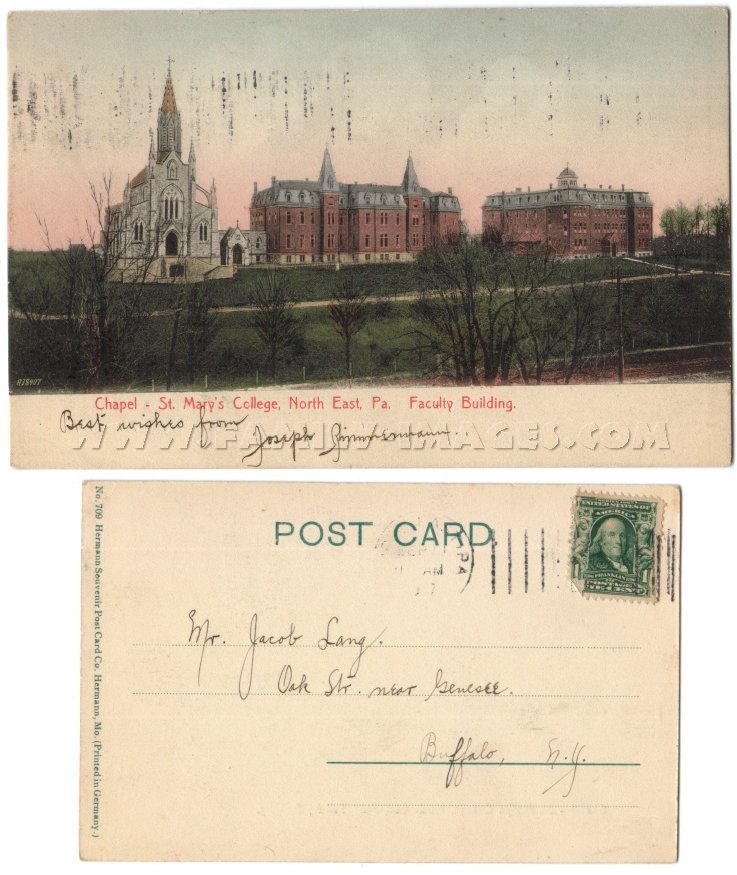 A75407
Chapel - St. Mary's College, North East, Pa. Faculty Building.
Best wishes from
Joseph Zimmermann.
WWW.FAMILY-IMAGES.COM
No. 709 Hermann Souvenir Post Card Co. Hermann, Mo. (Printed in Germany.)
POST CARD
PA
AM
UNITED STATES OF
AMERICA
FRANKLIN
1 1
POSTAGE
ONE CENT
Mr. Jacob Lang.
Oak Str. near Genesee.
Buffalo, N.Y.